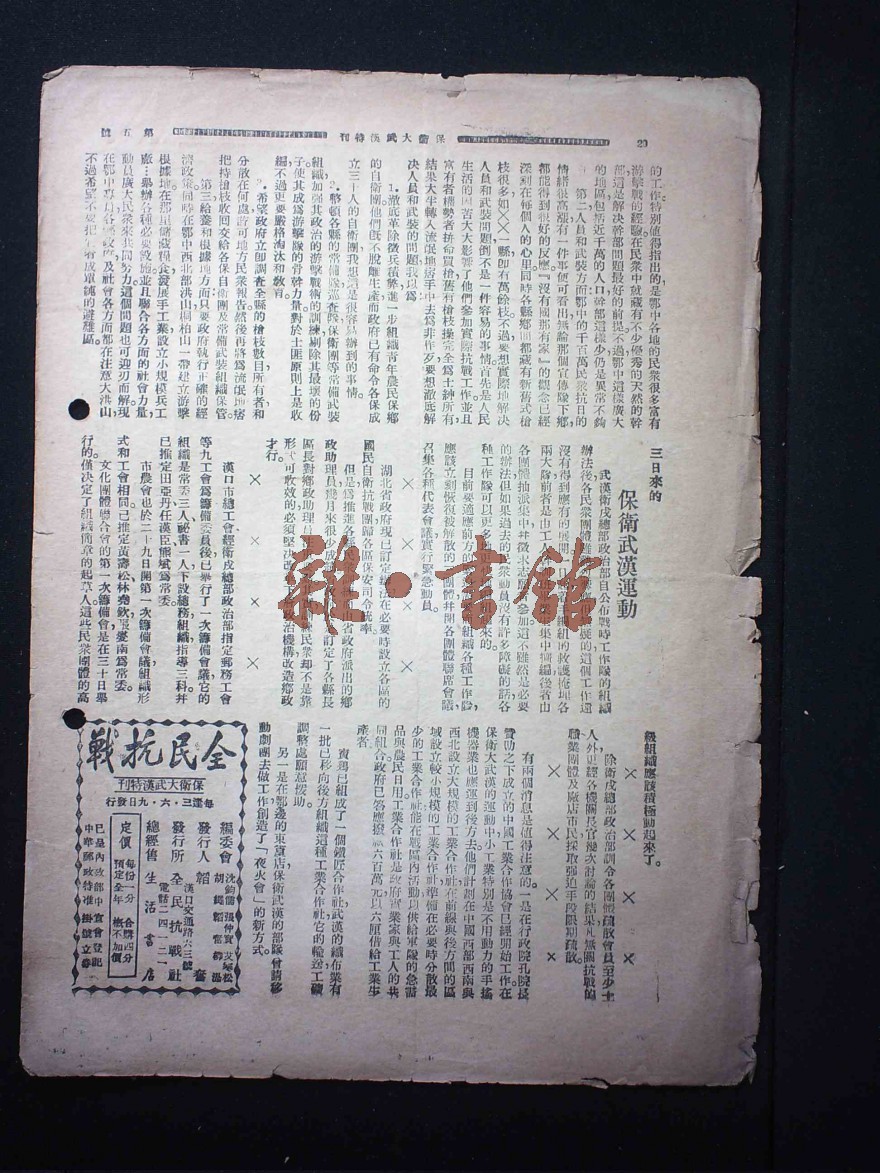 20
保衛大武漢特刊
第五號
的工作。特別值得指出的，是鄂中各地的民衆很多富有
游擊戰的經驗，在民衆中就藏有不少優秀的天然的幹
部，這是解決幹部問題最好的前提。不過鄂中這樣廣大
的地區，包括近千萬的人口，幹部這樣少，仍是異常不夠
第二，人員和武裝方面，鄂中的千百萬民衆抗日的
情緒很高漲，有一件事便可看出，無論那個宣傳隊下鄉，
都能得到很好的反應，『沒有國那有家』的觀念已經
深刻在每個人的心里。同時各縣鄉間都藏有新舊式槍
枝很多，如××一縣，卽有萬餘枝。不過要想實際地解決
人員和武裝問題，倒不是一件容易的事情。首先是人民
生活的困苦大大影響了他們參加實際抗戰工作，並且
富有者，權勢者拚命買槍，舊有槍枝操完全爲土紳所有，
結果大半轉入流氓地痞手中去爲非作歹。要想澈底解
決人員和武裝的問題，我以爲
1.澈底革除徵兵積弊，進一步組織青年農民保鄉
立三十人的自衛團，我想這是很容易辦到的事情。
的自衛團，他們旣不脫離生產，而政府已有命令各保成
2.整頓各縣的常備隊，巡查隊，保衛團等常備武裝
組織，加强其政治的游擊戰術的訓練，剔除其最壞的份
子，使其成爲游擊隊的骨幹力量。對於土匪原則上是收
編，不過更要嚴格淘汰和敎育。
3.希望政府立卽調查全縣的槍枝數目，所有者和
分散在何處，許可地方民衆報告，然後再將爲流氓地痞
把持槍枝收回交給各保自衛團及常備武裝組織保管。
第三，給養和根據地方面，只要政府執行正確的經
濟政策，同時在鄂中西北部洪山桐柏山一帶建立游擊
根據地，在那里儲藏糧食，發展手工業，設立小規模兵工
廠…舉辦各種必要設施，並且聯合各方面的社會力量，
動員廣大民衆來共同努力，這個問題也可迎刃而解。現
在鄂中專員，各縣政府及社會各方面都在注意大洪山，
不過希望不要把牠看成單純的避難區。
三日來的
保衛武漢運動
武漢衛戍總部政治部自公布戰時工作隊的組織
辦法後，各民衆團體
的這個工作還
沒有得到應有的展開。
組的救護掩埋各
兩大隊，前者是由工
集中
編，後者由
各團體抽派集中，并徵求志願
參加。這不雖然是必要
的辦法，但如果過去的民衆動員沒有許多障礙的話，各
種工作隊可以更多
來的。
目前要適應前方的
組織各種工作隊，
應該立刻恢復被解散的
團體，并開各團體聯席會議，
召集各種代表會議，實行緊急動員。
× × × ×
湖北省政府現已訂定辦法，在必要時設立各區的
國民自衛抗戰團，歸各區保安司令統率。
但是爲推進各
省政府派出的鄉
政助理員，幾月來很少成
訂定了各縣長
區長對鄉政助理員
民衆却不是靠
形式可收效的，必須堅決改
政治機構，改造鄉政
才行。
× × × ×
漢口市總工會經衛戍總部政治部指定郵務工會
等九工會爲籌備委員後，已舉行了一次籌備會議，它的
組織是常委三人，祕書一人，下設總務組織指導三科，并
已推定田亞丹任漢臣熊斌爲常委。
市農會也於二十九日開第一次籌備會議，組織形
式和工會相同，已推定黃壽松林堯欽張變南爲常委。
文化團體聯合會的第一次籌備會是在三十日舉
行的，僅決定了組織簡章的起草人。這些民衆團體的高
級組織應該積極動起來了。
× × × ×
除衛戍總部政治部訓令各團體疏散會員至少十
人外，更經各機關長官幾次討論的結果，凡無關抗戰的
職業團體及廠店市民採取强迫手段限期疏散。
× × × ×
有兩個消息是值得注意的。一是在行政院孔院長
贊助之下成立的中國工業合作協會已經開始工作。在
保衛大武漢的運動中，小工業特別是不用動力的手搖
機器業也應運到後方去，他們計劃在中國西部西南與
西北設立大規模的工業合作社，在前線與後方間的區
域設立較小規模的工業合作社，準備在必要時分散最
少的工業合作社，能在戰區內活動，以供給軍隊的急需
品與農民日用。工業合作社是政府，實業家與工人的共
同組合，政府已答應撥款六百萬元以六厘借給工業生
產者。
寶鷄已組成了一個鐵匠合作社，武漢的織布業有
一批已移向後方組織這種工業合作社，它的輸送工礦
調整處願意援助。
另一是在鄂邊的東篁店保衛武漢的部隊曾請移
動劇團去做工作，創造了「夜火會」的新方式。
全民抗戰
保衛大武漢特刊
每逢三·六·九日發行
編委會 沈鈞儒 張仲實 艾寒松 胡繩 韜奮 柳湜
發行人 韜奮
發行所 全民抗戰社
漢口交通路六三號
電話二四一二一
總經售 生活書店
定價 每份一分 合購四分 預定全年 概不加價
已呈內政部中宣會登記
中華郵政特准掛號立券
雜·書館